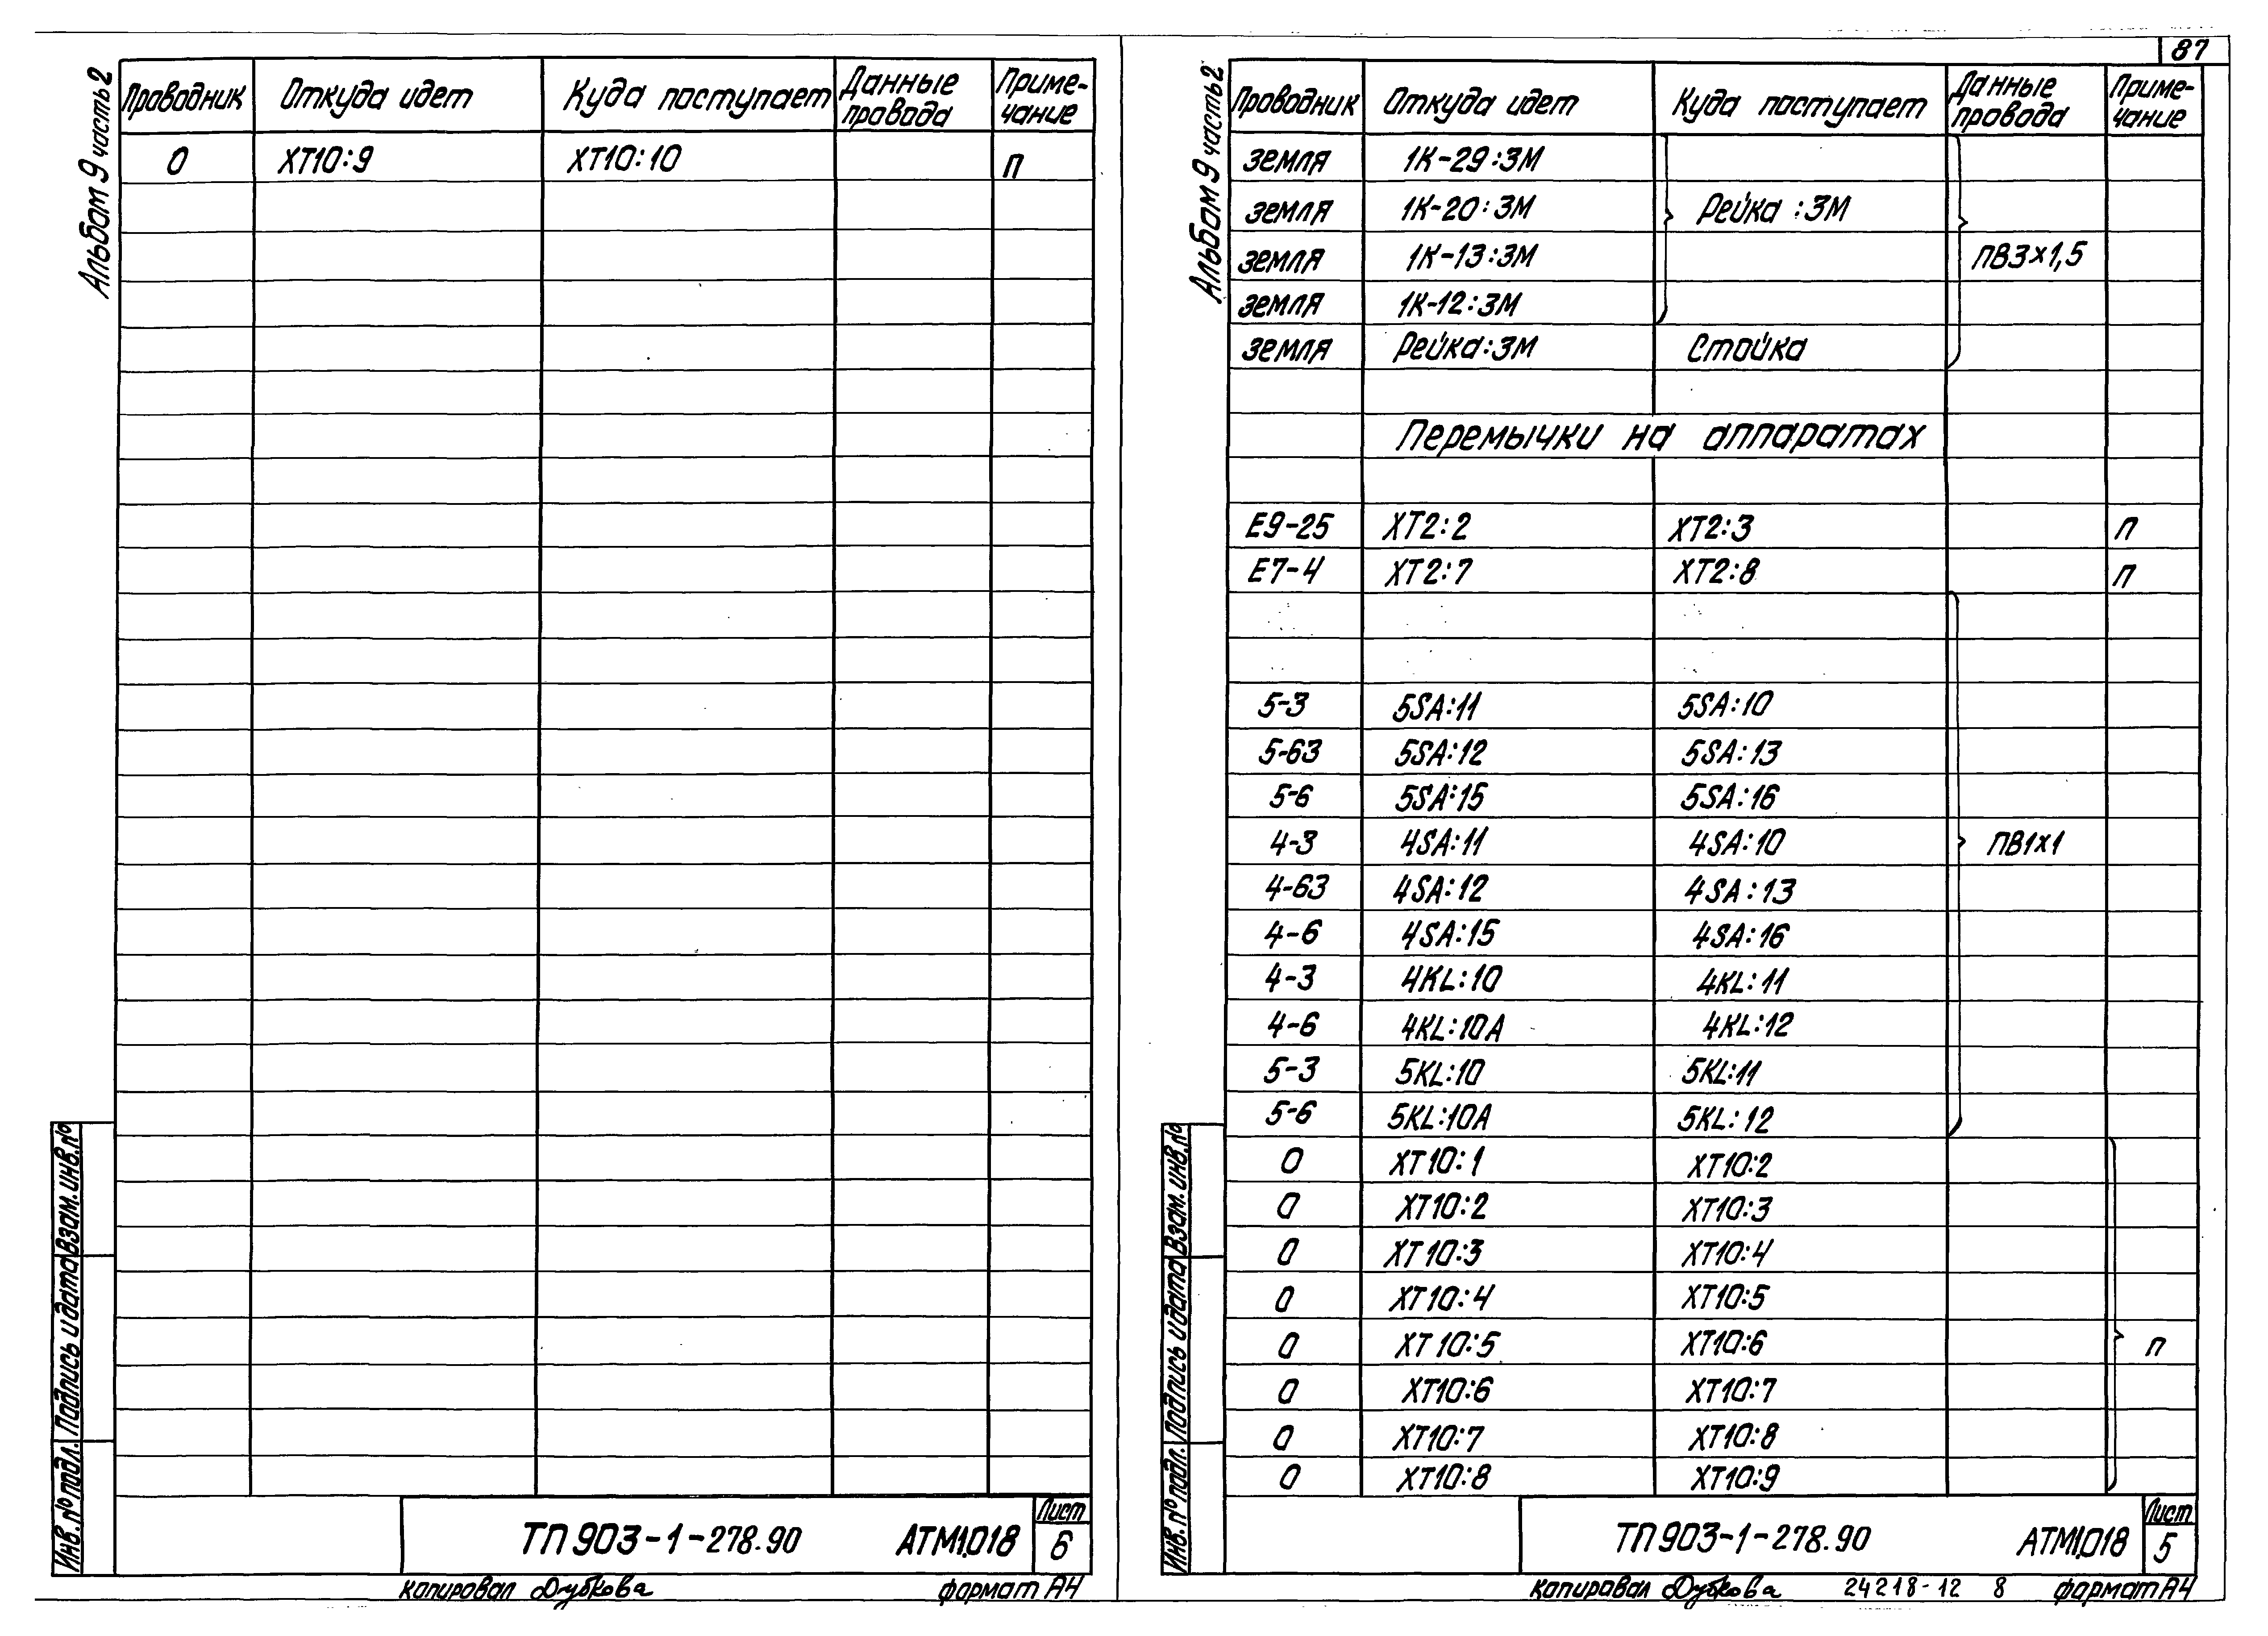 Альбом 9 часть 2
Проводник Откуда идет Куда поступает Данные провода Приме-чание
0 XT10:9 XT10:10 П
Взам. инв. №
Подпись и дата
Инв. № подл.
ТП 903-1-278.90 АТМ1.018 Лист 6
копировал Дубкова формат А4
87
Альбом 9 часть 2
Проводник Откуда идет Куда поступает Данные провода Приме-чание
земля 1К-29:ЗМ
земля 1К-20:ЗМ Рейка:ЗМ
земля 1К-13:ЗМ ПВ3х1,5
земля 1К-12:ЗМ
земля Рейка:ЗМ Стойка
Перемычки на аппаратах
E9-25 XT2:2 XT2:3 П
E7-4 XT2:7 XT2:8 П
5-3 5SA:11 5SA:10
5-63 5SA:12 5SA:13
5-6 5SA:15 5SA:16
4-3 4SA:11 4SA:10 ПВ1х1
4-63 4SA:12 4SA:13
4-6 4SA:15 4SA:16
4-3 4KL:10 4KL:11
4-6 4KL:10A 4KL:12
5-3 5KL:10 5KL:11
5-6 5KL:10A 5KL:12
0 XT10:1 XT10:2
0 XT10:2 XT10:3
0 XT10:3 XT10:4
0 XT10:4 XT10:5
0 XT10:5 XT10:6 П
0 XT10:6 XT10:7
0 XT10:7 XT10:8
0 XT10:8 XT10:9
Взам. инв. №
Подпись и дата
Инв. № подл.
ТП 903-1-278.90 АТМ1.018 Лист 5
копировал Дубкова 24218-12 8 формат А4